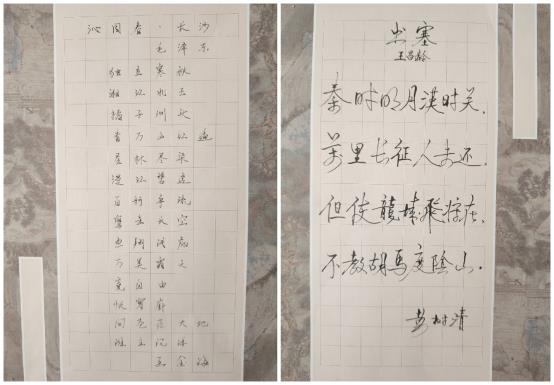 沁园春·长沙
毛泽东
独立寒秋
湘江北去
橘子洲头
看万山红遍
层林尽染
漫江碧透
百舸争流
鹰击长空
鱼翔浅底
万类霜天
竞自由
怅寥廓
问苍茫大地
谁主沉
出塞
王昌龄
秦时明月漢时关.
萬里长征人未还.
但使龍城飛将在.
不教胡马度陰山.
彭树清